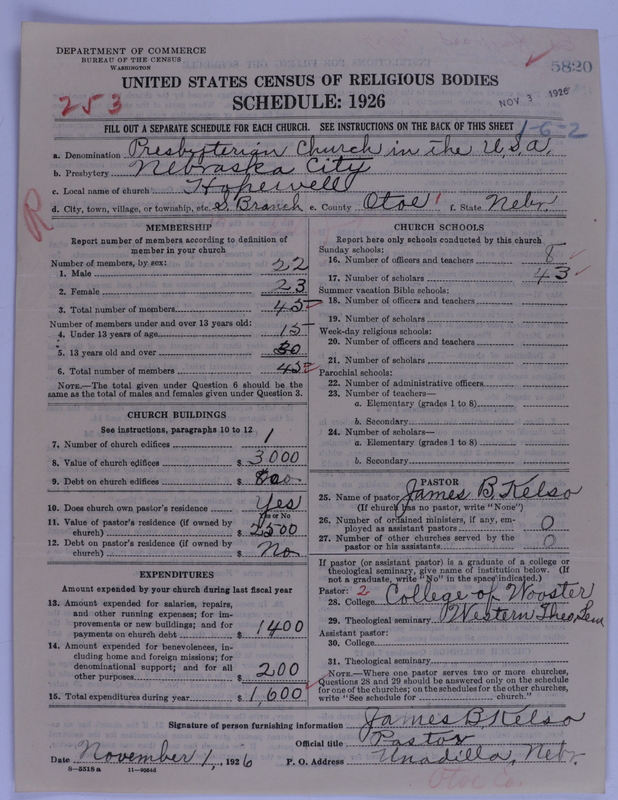 DEPARTMENT OF COMMERCE
BUREAU OF THE CENSUS
WASHINGTON
5820
UNITED STATES CENSUS OF RELIGIOUS BODIES
253
SCHEDULE: 1926
NOV 3 1926
FILL OUT A SEPARATE SCHEDULE FOR EACH CHURCH. SEE INSTRUCTIONS ON THE BACK OF THIS SHEET
1-6-2
a. Denomination Presbyterian Church in the U.S.A.
b. Presbytery Nebraska City
c. Local name of church Hopewell
d. City, town, village, or township, etc. S. Branch e. County Otoe f. State Nebr.
R
MEMBERSHIP
Report number of members according to definition of
member in your church
Number of members, by sex:
1. Male 22
2. Female 23
3. Total number of members 45
Number of members under and over 13 years old:
4. Under 13 years of age 15
5. 13 years old and over 30
6. Total number of members 45
NOTE.—The total given under Question 6 should be
same as the total of males and females given under Question 3.
CHURCH BUILDINGS
See instructions, paragraphs 10 to 12
7. Number of church edifices 1
8. Value of church edifices $ 3000
9. Debt on church edifices $ 800
10. Does church own pastor's residence Yes
Yes or No
11. Value of pastor's residence (if owned by
church) $ 2500
12. Debt on pastor's residence (if owned by
church) $ No
EXPENDITURES
Amount expended by your church during last fiscal year
13. Amount expended for salaries, repairs,
and other running expenses; for im-
provements or new buildings; and for
payments on church debt $ 1400
14. Amount expended for benevolences, in-
cluding home and foreign missions; for
denominational support; and for all
other purposes $ 200
15. Total expenditures during year $ 1,600
CHURCH SCHOOLS
Report here only schools conducted by this church
Sunday schools:
16. Number of officers and teachers 8
17. Number of scholars 43
Summer vacation Bible schools:
18. Number of officers and teachers
19. Number of scholars
Week-day religious schools:
20. Number of officers and teachers
21. Number of scholars
Parochial schools:
22. Number of administrative officers
23. Number of teachers—
a. Elementary (grades 1 to 8)
b. Secondary
24. Number of scholars—
a. Elementary (grades 1 to 8)
b. Secondary
PASTOR
25. Name of pastor James B. Kelso
(If church has no pastor, write "None")
26. Number of ordained ministers, if any, em-
ployed as assistant pastors 0
27. Number of other churches served by the
pastor or his assistants 0
If pastor (or assistant pastor) is a graduate of a college or
theological seminary, give name of institution below. (If
not a graduate, write "No" in the space indicated.)
Pastor: 2
28. College College of Wooster
29. Theological seminary Western Theo. Sem
Assistant pastor:
30. College
31. Theological seminary
NOTE.—Where one pastor serves two or more churches,
Questions 28 and 29 should be answered only on the schedule
for one of the churches; on the schedules for the other churches,
write "See schedule for church."
Signature of person furnishing information James B. Kelso
Official title Pastor
Date November 1, 1926 P. O. Address Unadilla, Nebr.
8-5518 a 11-9034d
Otoe Co.